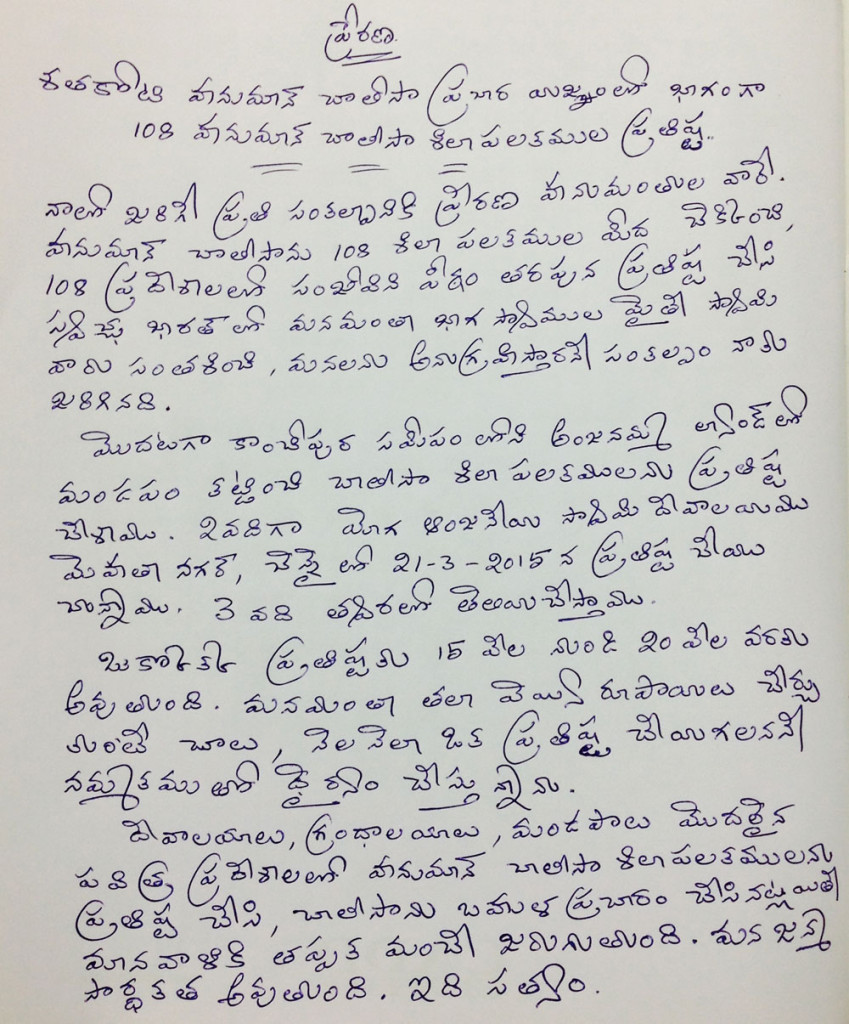 ప్రేరణ
శతకోటి హనుమాన్ చాలీసా ప్రచార యజ్ఞంలో భాగంగా
108 హనుమాన్ చాలీసా శిలా పలకముల ప్రతిష్ట..
నాలో జరిగే ప్రతి సంకల్పానికి ప్రేరణ హనుమంతుల వారే.
హనుమాన్ చాలీసాను 108 శిలా పలకముల మీద చెక్కించి,
108 ప్రదేశాలలో సంజీవిని పీఠం తరపున ప్రతిష్ట చేసి
స్వచ్ఛ భారత్ లో మనమంతా భాగ స్వాములమైతే స్వామి
వారు సంతశించి, మనలను అనుగ్రహిస్తారనే సంకల్పం నాకు
జరిగినది.
మొదటగా కాంచీపుర సమీపం లోని అంజనమ్మ ల్యాండ్ లో
మండపం కట్టించి చాలీసా శిలా పలకములను ప్రతిష్ట
చేశాము. 2వదిగా యోగ ఆంజనేయ స్వామి దేవాలయము
మెహతా నగర్, చెన్నై లో 21-3-2015 న ప్రతిష్ట చేయు
చున్నాము. 3 వది త్వరలో తెలియచేస్తాము.
ఒకొక్క ప్రతిష్టకు 15 వేల నుండి 20 వేల వరకు
అవుతుంది. మనమింతా తలా వెయ్యి రూపాయిలు చేర్చు
కుంటే చాలు, నెల నెలా ఒక ప్రతిష్ట చేయగలననే
నమ్మకముతో ధైర్యం చేస్తున్నాను.
దేవాలయాలు, గ్రంధాలయాలు, మండపాలు మొదలైన
పవిత్ర ప్రదేశాలలో హనుమాన్ చాలీసా శిలా పలకములను
ప్రతిష్ట చేసి, చాలీసాను బహుళ ప్రచారం చేసినట్లయితే
మానవాళికి తప్పక మంచే జరుగుతుంది. మన జన్మ
సార్ధకత అవుతుంది. ఇది సత్యం.